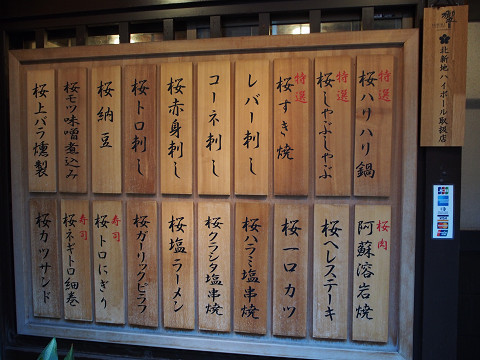 響
北新地ハイボール取扱店
特選
桜ハリハリ鍋
特選
桜しゃぶしゃぶ
特選
桜すき焼
レバー刺し
コーネ刺し
桜赤身刺し
桜トロ刺し
桜納豆
桜モツ味噌煮込み
桜上バラ燻製
桜肉
阿蘇溶岩焼
桜ヘレステーキ
桜一口カツ
桜ハラミ塩串焼
桜クラシタ塩串焼
桜塩ラーメン
桜ガーリックピラフ
寿司
桜トロにぎり
寿司
桜ネギトロ細巻
桜カツサンド